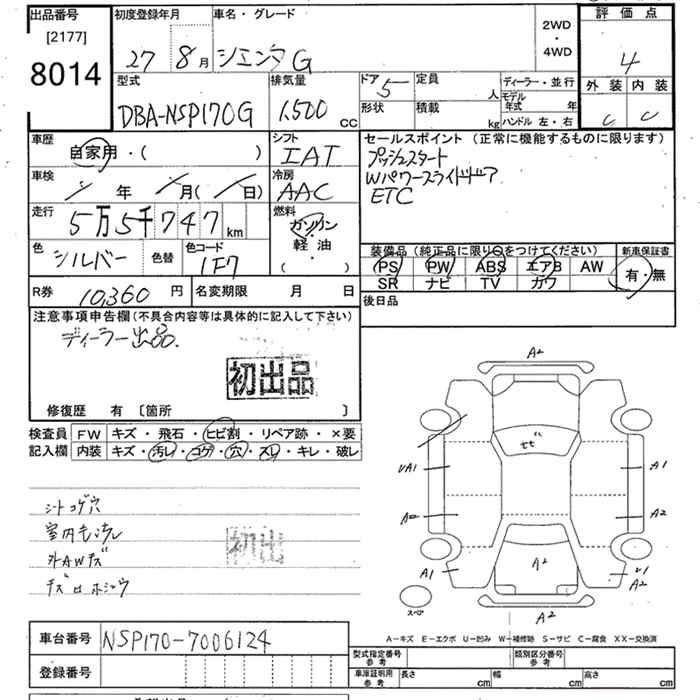 出品番号
[2177]
8014
初度登録年月
27 8月
車名・グレード
シエンタG
2WD
・
4WD
評価点
4
外装 内装
C C
型式
DBA-NSP170G
排気量
1,500 CC
ドア 5
形状
定員 人
積載 kg
ディーラー・並行
モデル
年式 年
ハンドル 左・右
車歴
自家用・( )
シフト
IAT
セールスポイント (正常に機能するものに限ります)
プッシュスタート
Wパワースライドドア
ETC
車検
年 月( 日)
冷房
AAC
走行
5万5千747km
燃料
ガソリン
・
軽油
・
( )
色
シルバー
色替
色コード
1F7
装備品 (純正品に限り○をつけてください)
PS PW ABS エアB AW
SR ナビ TV カワ
新車保証書
有・無
R券 10,360円
名変期限 月 日
後日品
注意事項申告欄(不具合内容等は具体的に記入して下さい)
ディーラー出品.
初出品
修復歴 有 [箇所 ]
検査員
記入欄
FW キズ・飛石・ヒビ割・リペア跡・×要
内装 キズ・汚レ・コゲ・穴・スレ・キレ・破レ
シートコゲ穴
初出
A2
UA1
A1
A2
A2
A2
A1
A2
A2
スペア
A-キズ E-エクボ U-凹み W-補修跡 S-サビ C-腐食 XX-交換済
車台番号
NSP170-7006124
登録番号
型式指定番号
参考
類別区分番号
参考
車庫証明用
参考
長さ cm
幅 cm
高さ cm